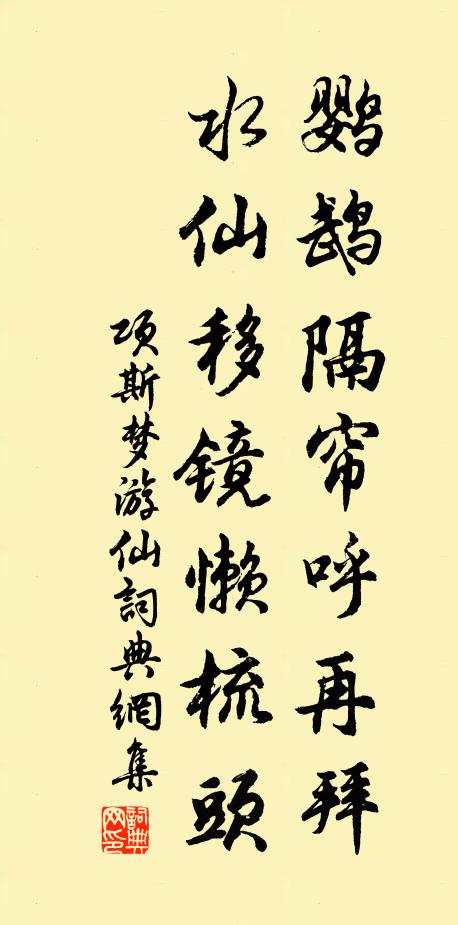 鹦鹉隔帘呼再拜
水仙移镜懒梳头
项斯梦游仙詞典網集
詞典网印